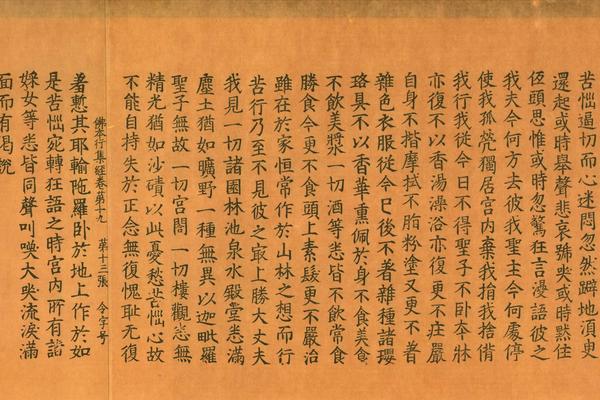 苦惱逼切而心迷悶忽然躃地湏臾
還起或時舉聲悲哀號哭或時默住
伍頭思惟或時忽驚狂言漫語彼之
我夫今何方去彼我聖主今何處停
使我孤煢獨居宮内棄我捐我捨偝
我行我從今日不得聖子不卧本牀
亦復不以香湯澡浴亦復更不莊嚴
自身不揩摩拭不脂粉塗又更不著
雜色衣服從今已後不著雜種諸瓔
珞具不以香華熏佩於身不食美食
不飲美漿一切酒等悉皆不飲常食
勝食今更不食頭上素髮更不嚴治
雖在於家恒常作於山林之想而行
苦行乃至不見彼之㝡上勝大丈夫
我見一切諸園林池泉水毉堂悉滿
塵土猶如曠野一種無異以迦毗羅
聖子無故一切宮閤一切樓觀悉無
精光猶如沙磧以此憂愁苦惱心故
不能自持失於正念無復愧耻無復
佛本行集經卷第十九 第十三張 令字号
著慙其耶輸陁羅卧於地上作於如
是苦惱宛轉狂語之時宮内所有諸
婇女等悉皆同聲叫喚大哭流淚滿
面而有偈說